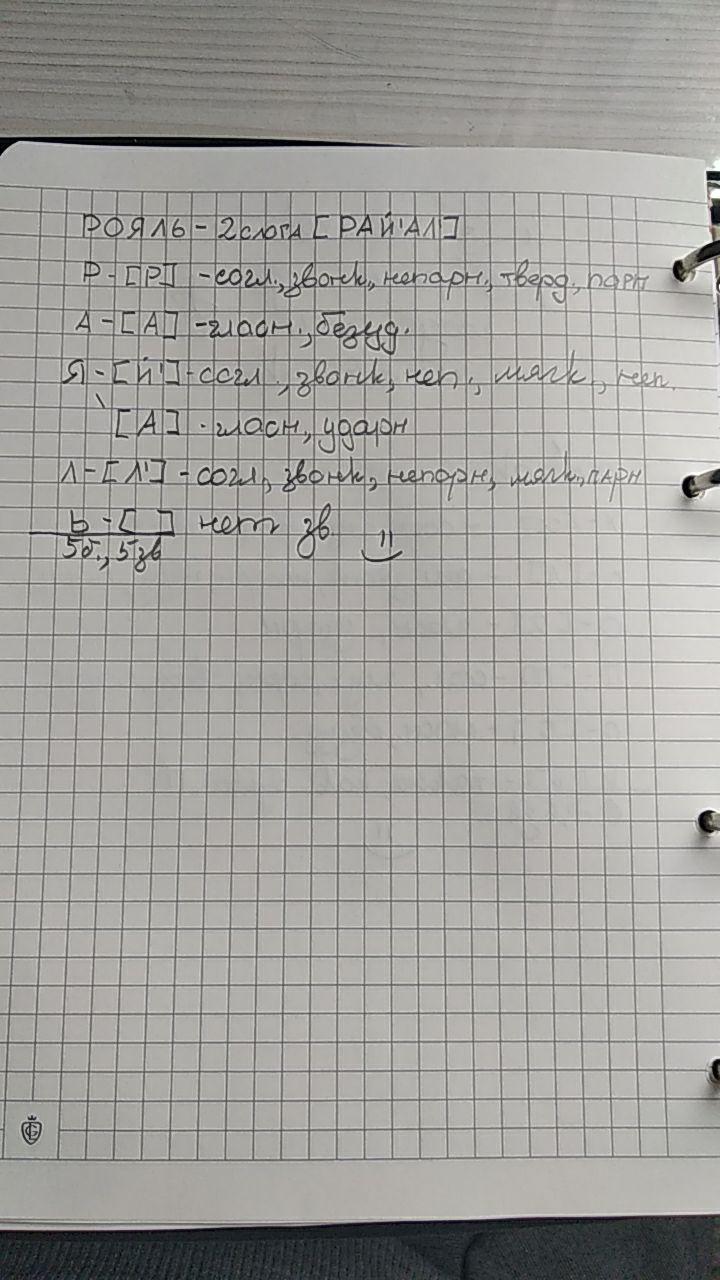 РОЯЛЬ - 2 слога [РАЙ'АЛ']
Р - [Р] - согл., звонк., непарн., тверд., парн
А - [А] - гласн., безуд.
Я - [Й'] - согл., звонк, неп., мягк., неп.
[А] - гласн, ударн
Л - [Л'] - согл, звонк, непарн, мягк., парн
Ь - [ ] нет зв.
5б., 5зв